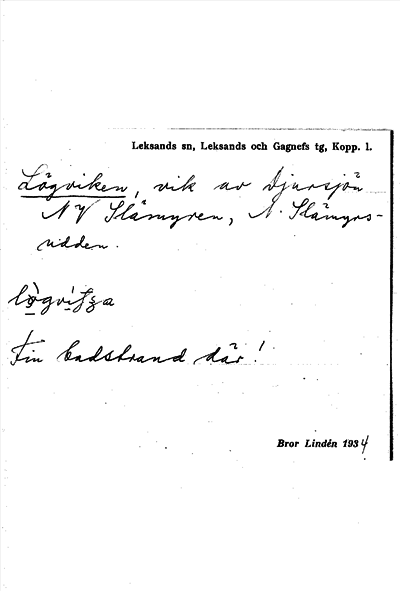 Leksands sn, Leksands och Gagnefs tg, Kopp. l.
Lögviken, vik av Djursjön
NV Slåmyren, N. Slåmyrs-
udden.
Fin badstrand där!
Bror Lindén 1934